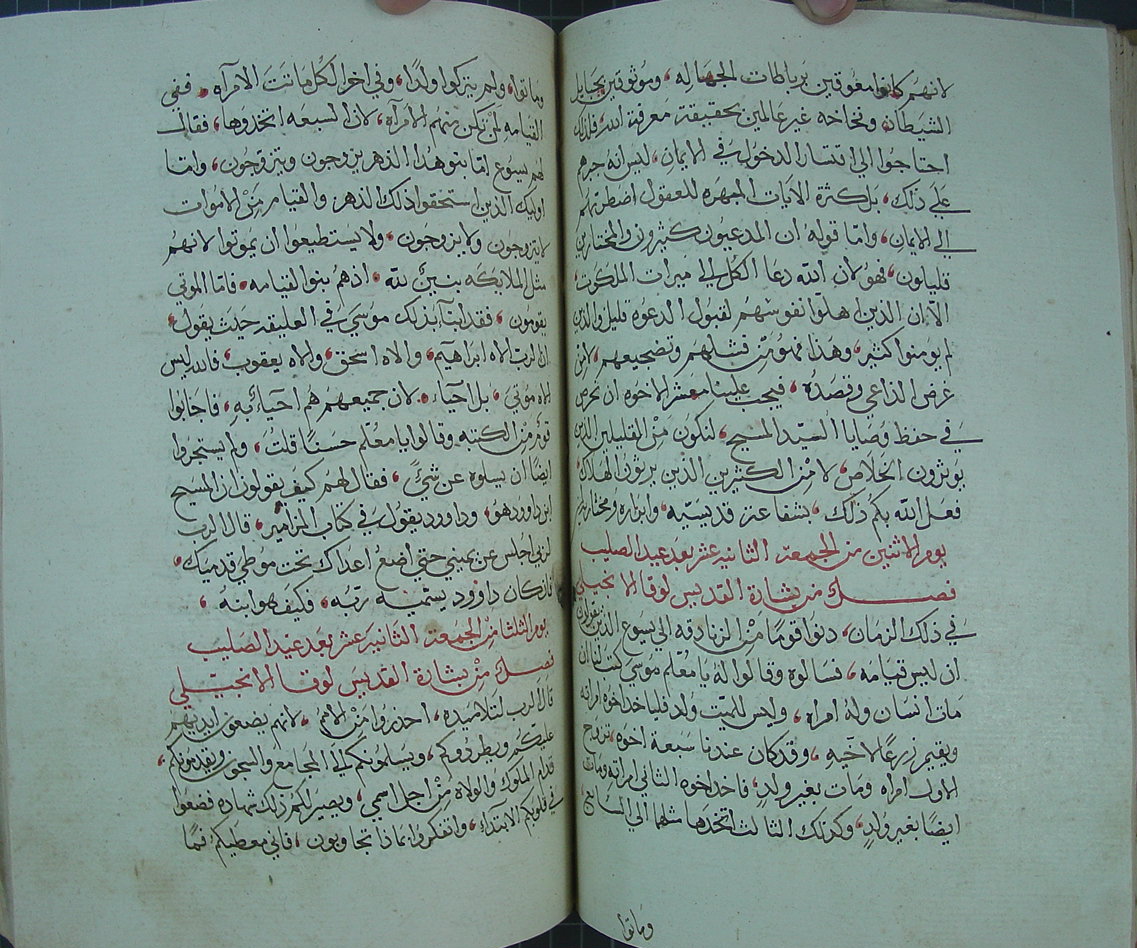 لانهم كانوا معوقين برباطات الجهاله، وموثوقين بحبايل
الشيطان وفخاخه غير عالمين بحقيقة معرفة الله، فلذلك
احتاجوا الي اقتسار الدخول في الايمان، ليس انه جبرهم
علي ذلك، بل كثرة الايات المبهره للعقول اضطرتهم
الي الايمان، واما قوله ان المدعيون كثيرون والمختارين
قليلون، فهو لان الله دعا الكل الي ميرات الملكوت
الا ان الذين اهلوا نفوسهم لقبول الدعوه قليل والذين
لم يومنوا كثير، وهذا فهو من فشلهم وتضجيعهم، لا من
غرض الداعي وقصده، فيجب علينا معشر الاخوه ان نحرص
في حفظ وصايا السيد المسيح، لنكون من القليلين الذين
يوثرون الخلاص، لا من الكثيرين الذين يرثون الهلاك
فعل الله بكم ذلك، بشفاعة قديسيه، وابراره ومختاريه
يوم الاثنين من الجمعة الثانية عشر بعد عيد الصليب
فصل من بشارة القديس لوقا الانجيلي
في ذلك الزمان، دنوا قوما من الزنادقه الي يسوع الذين يقولون
ان ليس قيامه، فسالوه وقالوا له يا معلم موسي كتب لنا ان
مات انسان وله امراه، وليس للميت ولد فلياخد اخوه امراته
ويقيم زرعا لاخيه، وقد كان عندنا سبعة اخوه، تزوج
الاول امراه ومات بغير ولد، فاخد اخوه الثاني امراته ومات
ايضا بغير ولد، وكذلك الثالث اتخدها مثلهما الي السابع،
وماتوا
وماتوا، ولم يتركوا ولدا، وفي اخر الكل ماتت الامراه، ففي
القيامه لمن تكن منهم الامراه، لان السبعه اتخدوها، فقال
لهم يسوع اما بنو هدا الدهر يزوجون ويتزوجون، واما
اوليك الذين استحقوا ذلك الدهر والقيامه من الاموات
لا يتزوجون ولا يزوجون، ولا يستطيعوا ان يموتوا لانهم
مثل الملايكه بنين لله، اذ هم بنوا القيامه، فاما الموتي
يقومون، فقد انبا بذلك موسي في العليقه حيث يقول،
ان الرب الاه ابراهيم، والاه اسحق، والاه يعقوب، فالله ليس
الاه موتي، بل احياء، لان جميعهم هم احياء به، فاجابوا
قوم من الكتبه وقالوا يا معلم حسنا قلت، ولم يستجروا
ايضا ان يسلوه عن شي، فقال لهم كيف يقولون ان المسيح
ابن داوود هو، وداوود يقول في كتاب المزامير، قال الرب
لربي اجلس عن يميني حتي اضع اعداك تحت موطي قدميك،
فان كان داوود يسميه ربه، فكيف هو ابنه،
يوم الثلثا من الجمعة الثانية عشر بعد عيد الصليب
فصل من بشارة القديس لوقا الانجيلي
قال الرب لتلاميده، احدروا من الامم، لانهم يضعون ايديهم
عليكم ويطردوكم، ويسلمونكم الي المجامع والسجون ويقدمونكم،
قدام الملوك والولاه من اجل اسمي، ويصير لكم ذلك شهاده فضعوا
في قلوبكم الابتداء، واتفكروا بماذا تجاوبون، فاني معطيكم فما